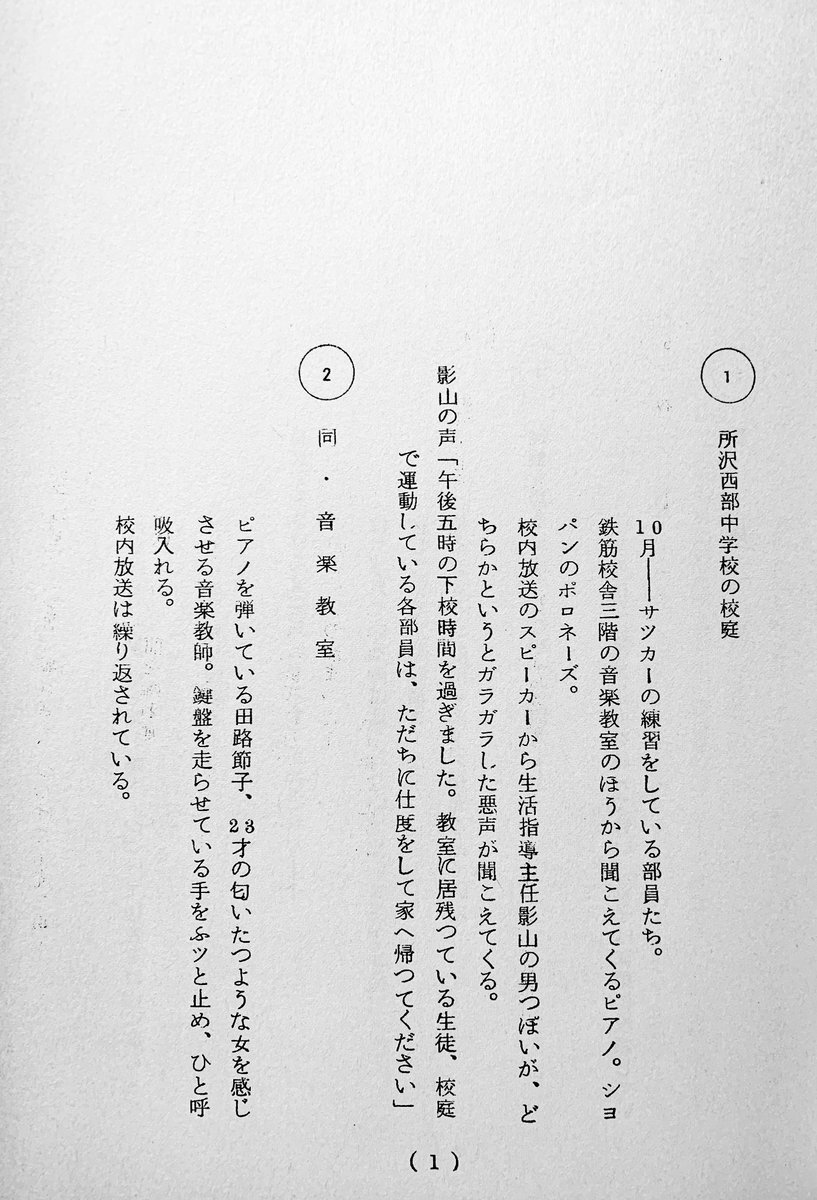 1 所沢西部中学校の校庭
10月――サツカーの練習をしている部員たち。
鉄筋校舎三階の音楽教室のほうから聞こえてくるピアノ。シヨ
パンのポロネーズ。
校内放送のスピーカーから生活指導主任影山の男つぽいが、ど
ちらかというとガラガラした悪声が聞こえてくる。
影山の声「午後五時の下校時間を過ぎました。教室に居残つている生徒、校庭
で運動している各部員は、ただちに仕度をして家へ帰つてください」
2 同・音楽教室
ピアノを弾いている田路節子、23才の匂いたつような女を感じ
させる音楽教師。鍵盤を走らせている手をふツと止め、ひと呼
吸入れる。
校内放送は繰り返されている。
(1)